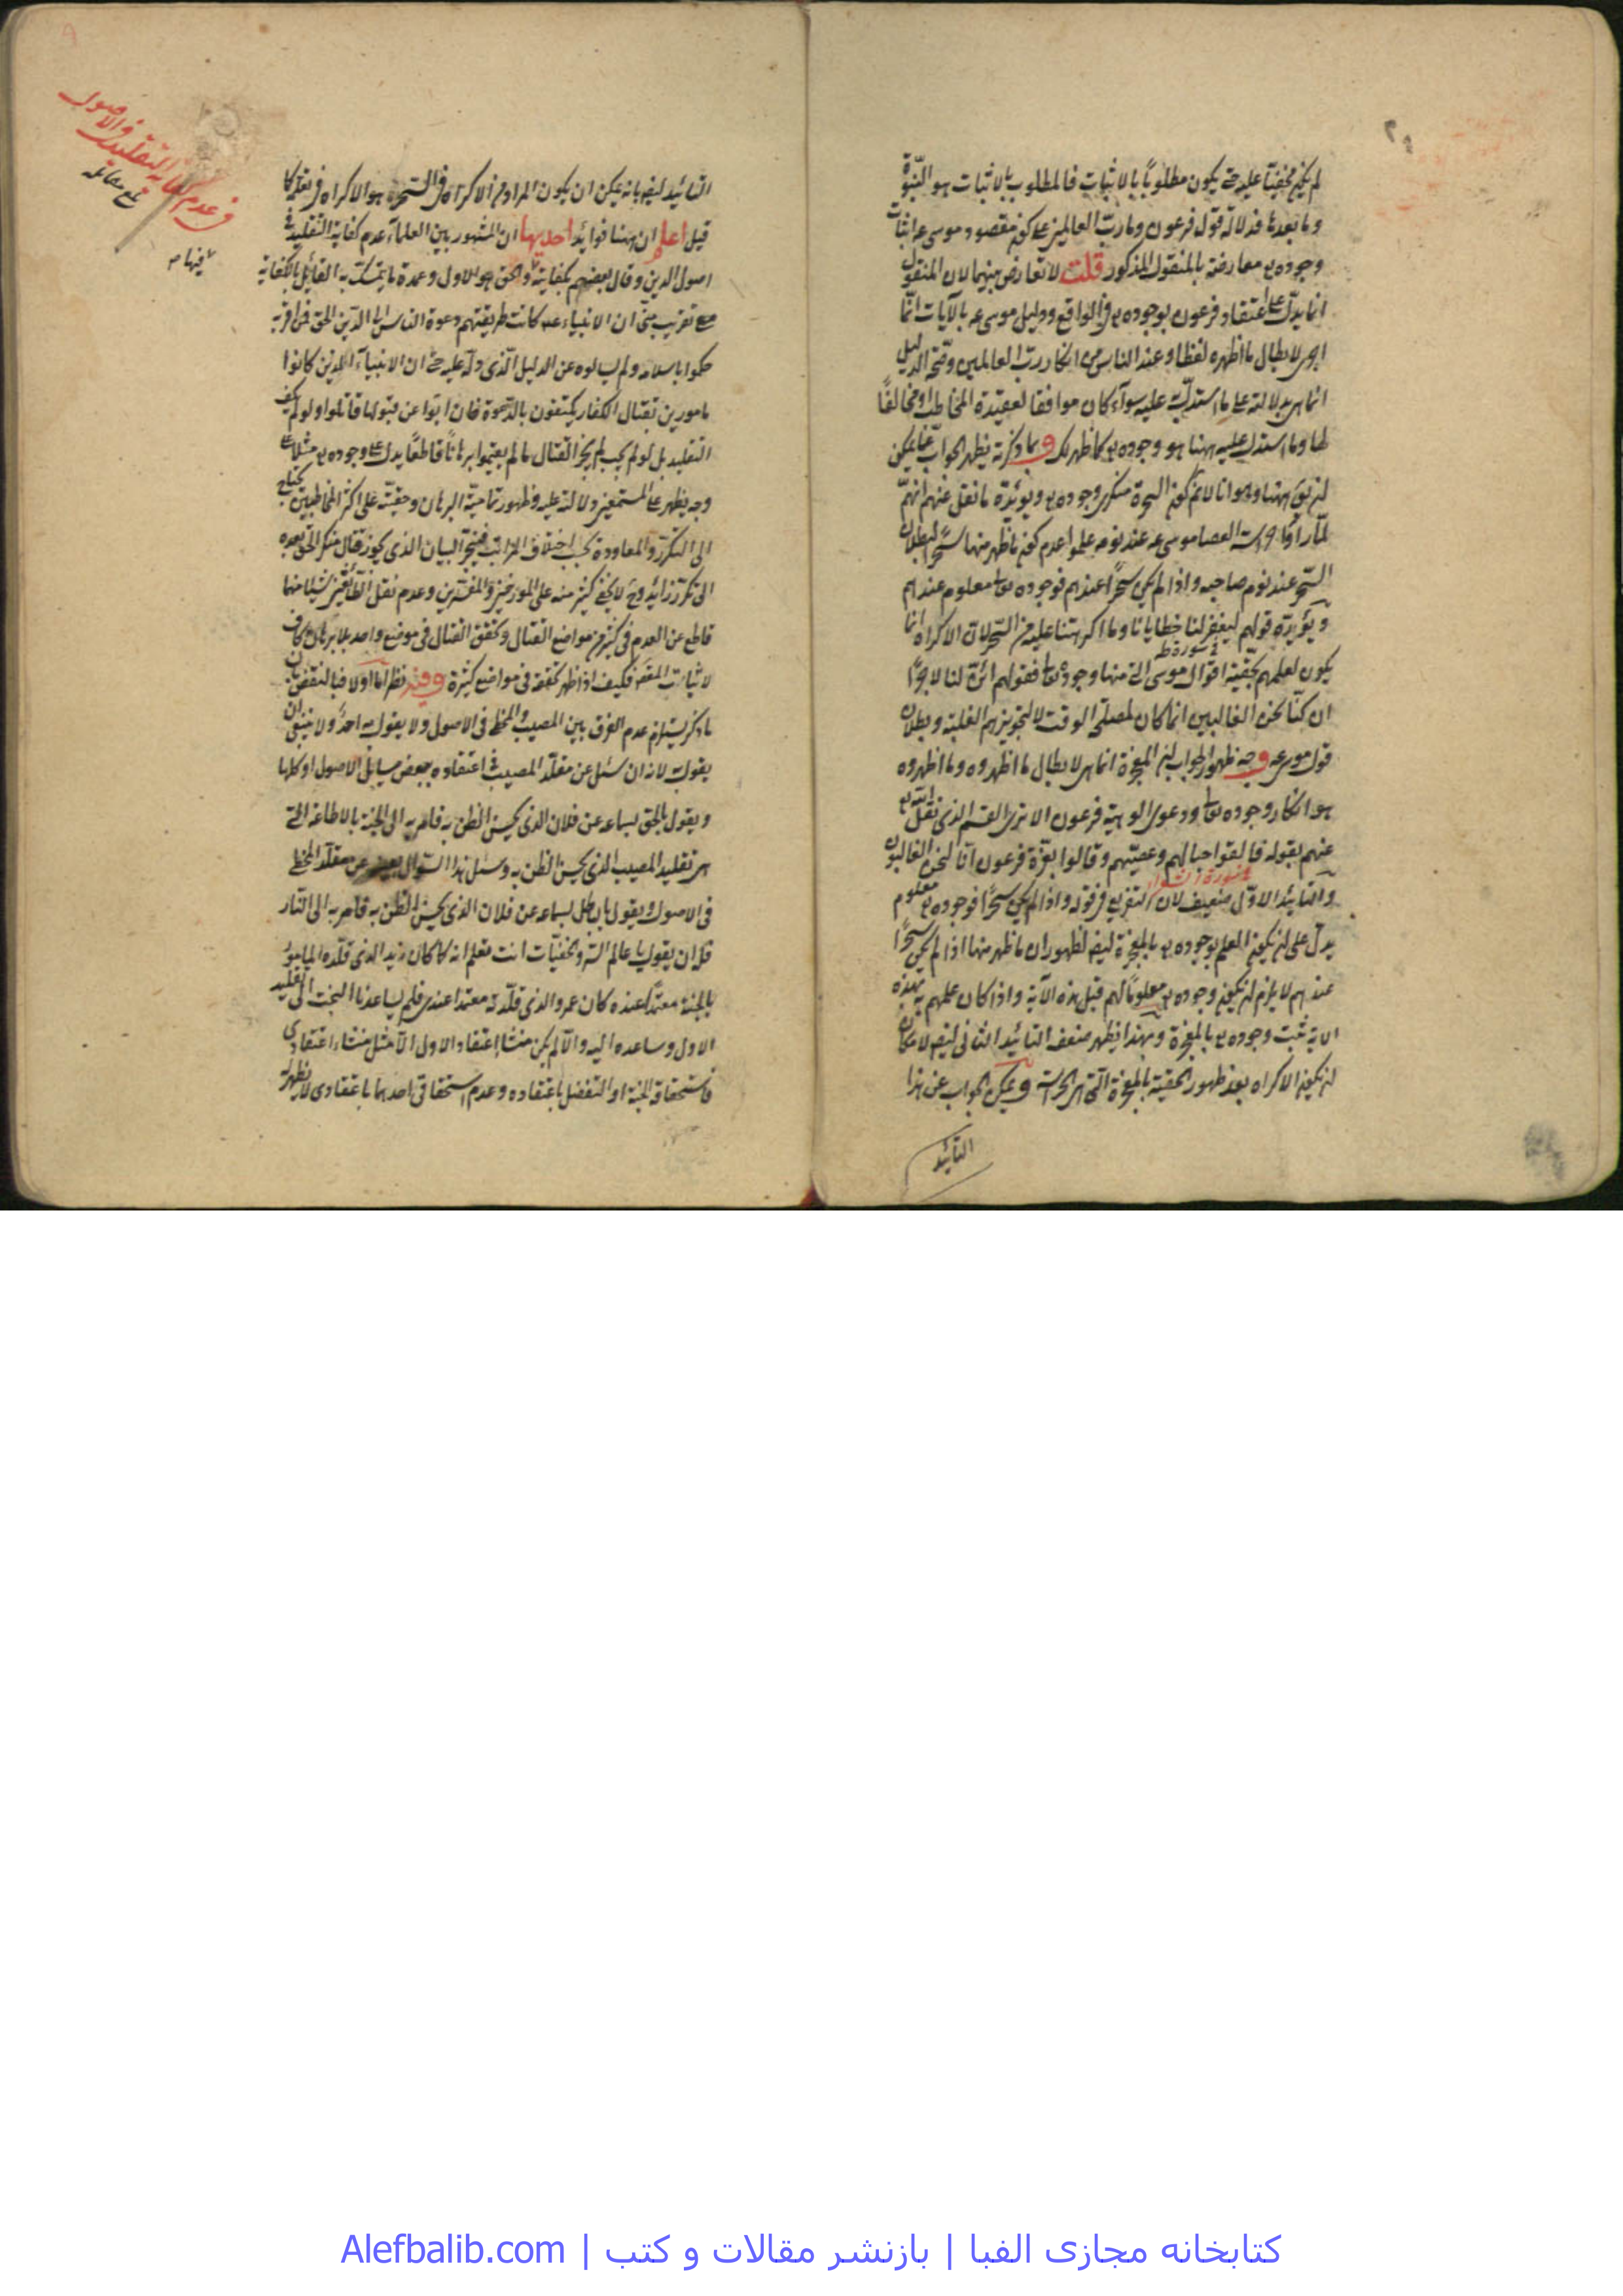 لم يكن مخفيّاً عليه حتى يكون مطلوباً بالاثبات فالمطلوب بالاثبات هو النبوّة
وما بعدها فدلالة قول فرعون وما ربّ العالمين على كون مقصود موسى عه اثبات
وجوده تع معارضة بالمنقول المذكور قلت لا تعارض بينهما لان المنقول
انما يدلّ على اعتقاد فرعون بوجوده تع في الواقع ودليل موسى عه بالآيات انّما
لابطال ما اظهره لفظا وعند الناس من انكار ربّ العالمين وصحّة الدليل
انما هي بدلالته على ما استدلّ عليه سوآء كان موافقا لعقيدة المخاطب او مخالفًا
لها وما استدل عليه ههنا هو وجوده تع كما ظهر لك وبما ذكرته يظهر الجواب عمّا يمكن
ان يق ههنا وهو انا لا نم كون السحرة منكري وجوده تع ويؤيّده ما نقل عنهم انهم
لمّا رأوا العصا موسى عه عند نومه علموا عدم كون ما ظهر منها سحرًا لبطلان
السحر عند نوم صاحبه واذا لم يكن سحرًا عندهم فوجوده تعا معلوم عندهم
ويؤيده قولهم ليغفر لنا خطايانا وما اكرهتنا عليه من السحر لان الاكراه انما
سورة طه
يكون لعلمهم بحقّية اقوال موسى التي منها وجوده تعا فقولهم ائنّ لنا لاجرًا
ان كنّا نحن الغالبين انما كان لمصلحة الوقت لا لتجويزهم الغلبة وبطلان
قول موسى عه وجه ظهور الجواب ان المعجزة انما هي لابطال ما اظهروه وما اظهروه
هو انكار وجوده تعا ودعوى الوهية فرعون الا ترى القسم الذي نقل الله تع
عنهم بقوله فالقوا حبالهم وعصيّهم وقالوا بعزّة فرعون انّا لنحن الغالبون
سورة الشعراء
والتأييد الاوّل ضعيف لان التفريع في قوله واذا لم يكن سحرًا فوجوده تع معلوم
يدلّ على ان يكون العلم بوجوده تع بالمعجزة ايض لظهور ان ما ظهر منها اذا لم يكن سحرًا
عندهم لا يلزم ان يكون وجوده تع معلومًا لهم قبل هذه الآية واذا كان علمهم به بهذه
الآية ثبت وجوده تع بالمعجزة وبهذا يظهر ضعف التأييد الثاني ايض لامكان
ان يكون الاكراه بعد ظهور الحقية بالمعجزة التي هي الحراسة ويمكن الجواب عن هذا
التأييد
التأييد ايض بانه يمكن ان يكون المراد من الاكراه في السحر هو الاكراه في تعلّم كما
قيل اعلم ان ههنا فوائد احديها ان المشهور بين العلماء عدم كفاية التقليد في
اصول الدين وقال بعضهم بكفايته والحق هو الاول وعمدة ما يتمسّك به القائل بالكفاية
مع تقريب منّي ان الانبياء عه كانت طريقتهم دعوة الناس الى الدّين الحق فمن اقرّ به
حكموا باسلامه ولم يسألوه عن الدليل الّذي دلّه عليه حتى ان الانبيآء الذين كانوا
مامورين بقتال الكفار يكتفون بالدّعوة فان ابوا عن قبولها قاتلوا ولو لم يكف
التقليد بل لو لم يجب لم يجز القتال ما لم يقيموا برهانًا قاطعًا يدل على وجوده تع مثلا على
وجه يظهر على المستمعين دلالته عليه وظهور تماميّة البرهان وحقيّته على اكثر المخاطبين يحتاج
الى التكرّر والمعاودة بحسب اختلاف المراتب البيان الذي يجوز قتال منكر الحق بعده
الى تكرّر زايد وح لا يخفى كثير منه على المورخين والمفسّرين وعدم نقل الطّائفتين شيئا منها
قاطع عن العدم في كثير من مواضع القتال وتحقق القتال في موضع واحد بلا برهان كاف
لاثبات المقص فكيف اذا ظهر تحققه في مواضع كثيرة وفيه نظر امّا اولا فبالنقض بان
ما ذكر يستلزم عدم الفرق بين المصيب والمخطى في الاصول ولا يقول به احد ولا ينبغي ان
يقول به لانه ان سئل عن مقلّد المصيب في اعتقاده ببعض مسايل الاصول او كلها
ويقول بالحق لسماعه عن فلان الذي يحسن الظن به فامر به الى الجنّة بالاطاعة التي
هي تقليد المصيب الذي يحسن الظن به وسئل هذا السؤال بعينه عن مقلّد المخطى
في الاصول ويقول بالباطل لسماعه عن فلان الذي يحسن الظن به فامر به الى النار
فله ان يقول يا عالم السرّ والخفيّات انت تعلم انه كما كان زيد الذي قلّده المامور
بالجنة معتمدًا عنده كان عمرو الذي قلّدته معتمدا عندي فلم يساعدنا البخت الى تقليد
الاول وساعده اليه والّا لم يكن منشأ اعتقاد الاول الّا مثل منشاء اعتقادي
فاستحقاق الجنة او التفضل باعتقاده وعدم استحقاق احدهما باعتقادي لا يظهر له
في عدم كفاية التقليد في الاصول
فيها م
کتابخانه مجازی الفبا | بازنشر مقالات و کتب | Alefbalib.com